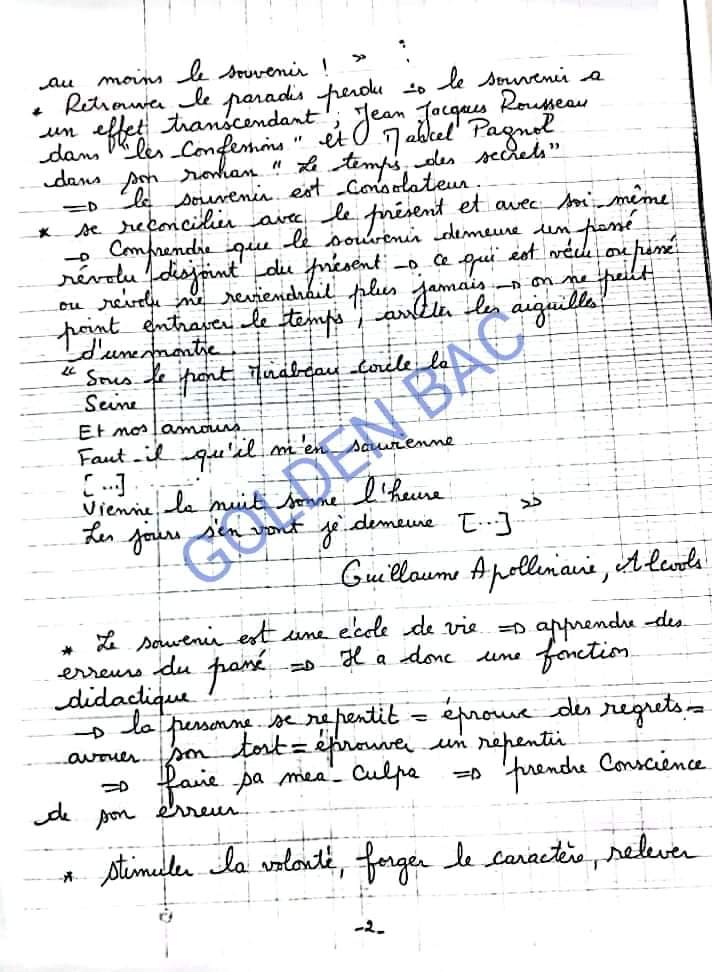 au moins le souvenir ! »
* Retrouver le paradis perdu → le souvenir a
un effet transcendant ; Jean Jacques Rousseau
dans "les Confessions" et Marcel Pagnol
dans son roman "Le temps des secrets"
⇒ le souvenir est consolateur.
* se réconcilier avec le présent et avec soi-même
→ Comprendre que le souvenir demeure un passé
révolu disjoint du présent → ce qui est vécu ou passé
ou révolu ne reviendrait plus jamais → on ne peut
point entraver le temps, arrêter les aiguilles
d'une montre.
"Sous le pont Mirabeau coule la
Seine
Et nos amours
Faut-il qu'il m'en souvienne
[...]
Vienne la nuit sonne l'heure
Les jours s'en vont je demeure [...] »
Guillaume Apollinaire, Alcools
* Le souvenir est une école de vie ⇒ apprendre des
erreurs du passé ⇒ Il a donc une fonction
didactique
→ la personne se repentit = éprouve des regrets =
avouer son tort = éprouver un repentir
⇒ faire sa mea-culpa ⇒ prendre conscience
de son erreur
* stimuler la volonté, forger le caractère, relever
-2-
GOLDEN BAC